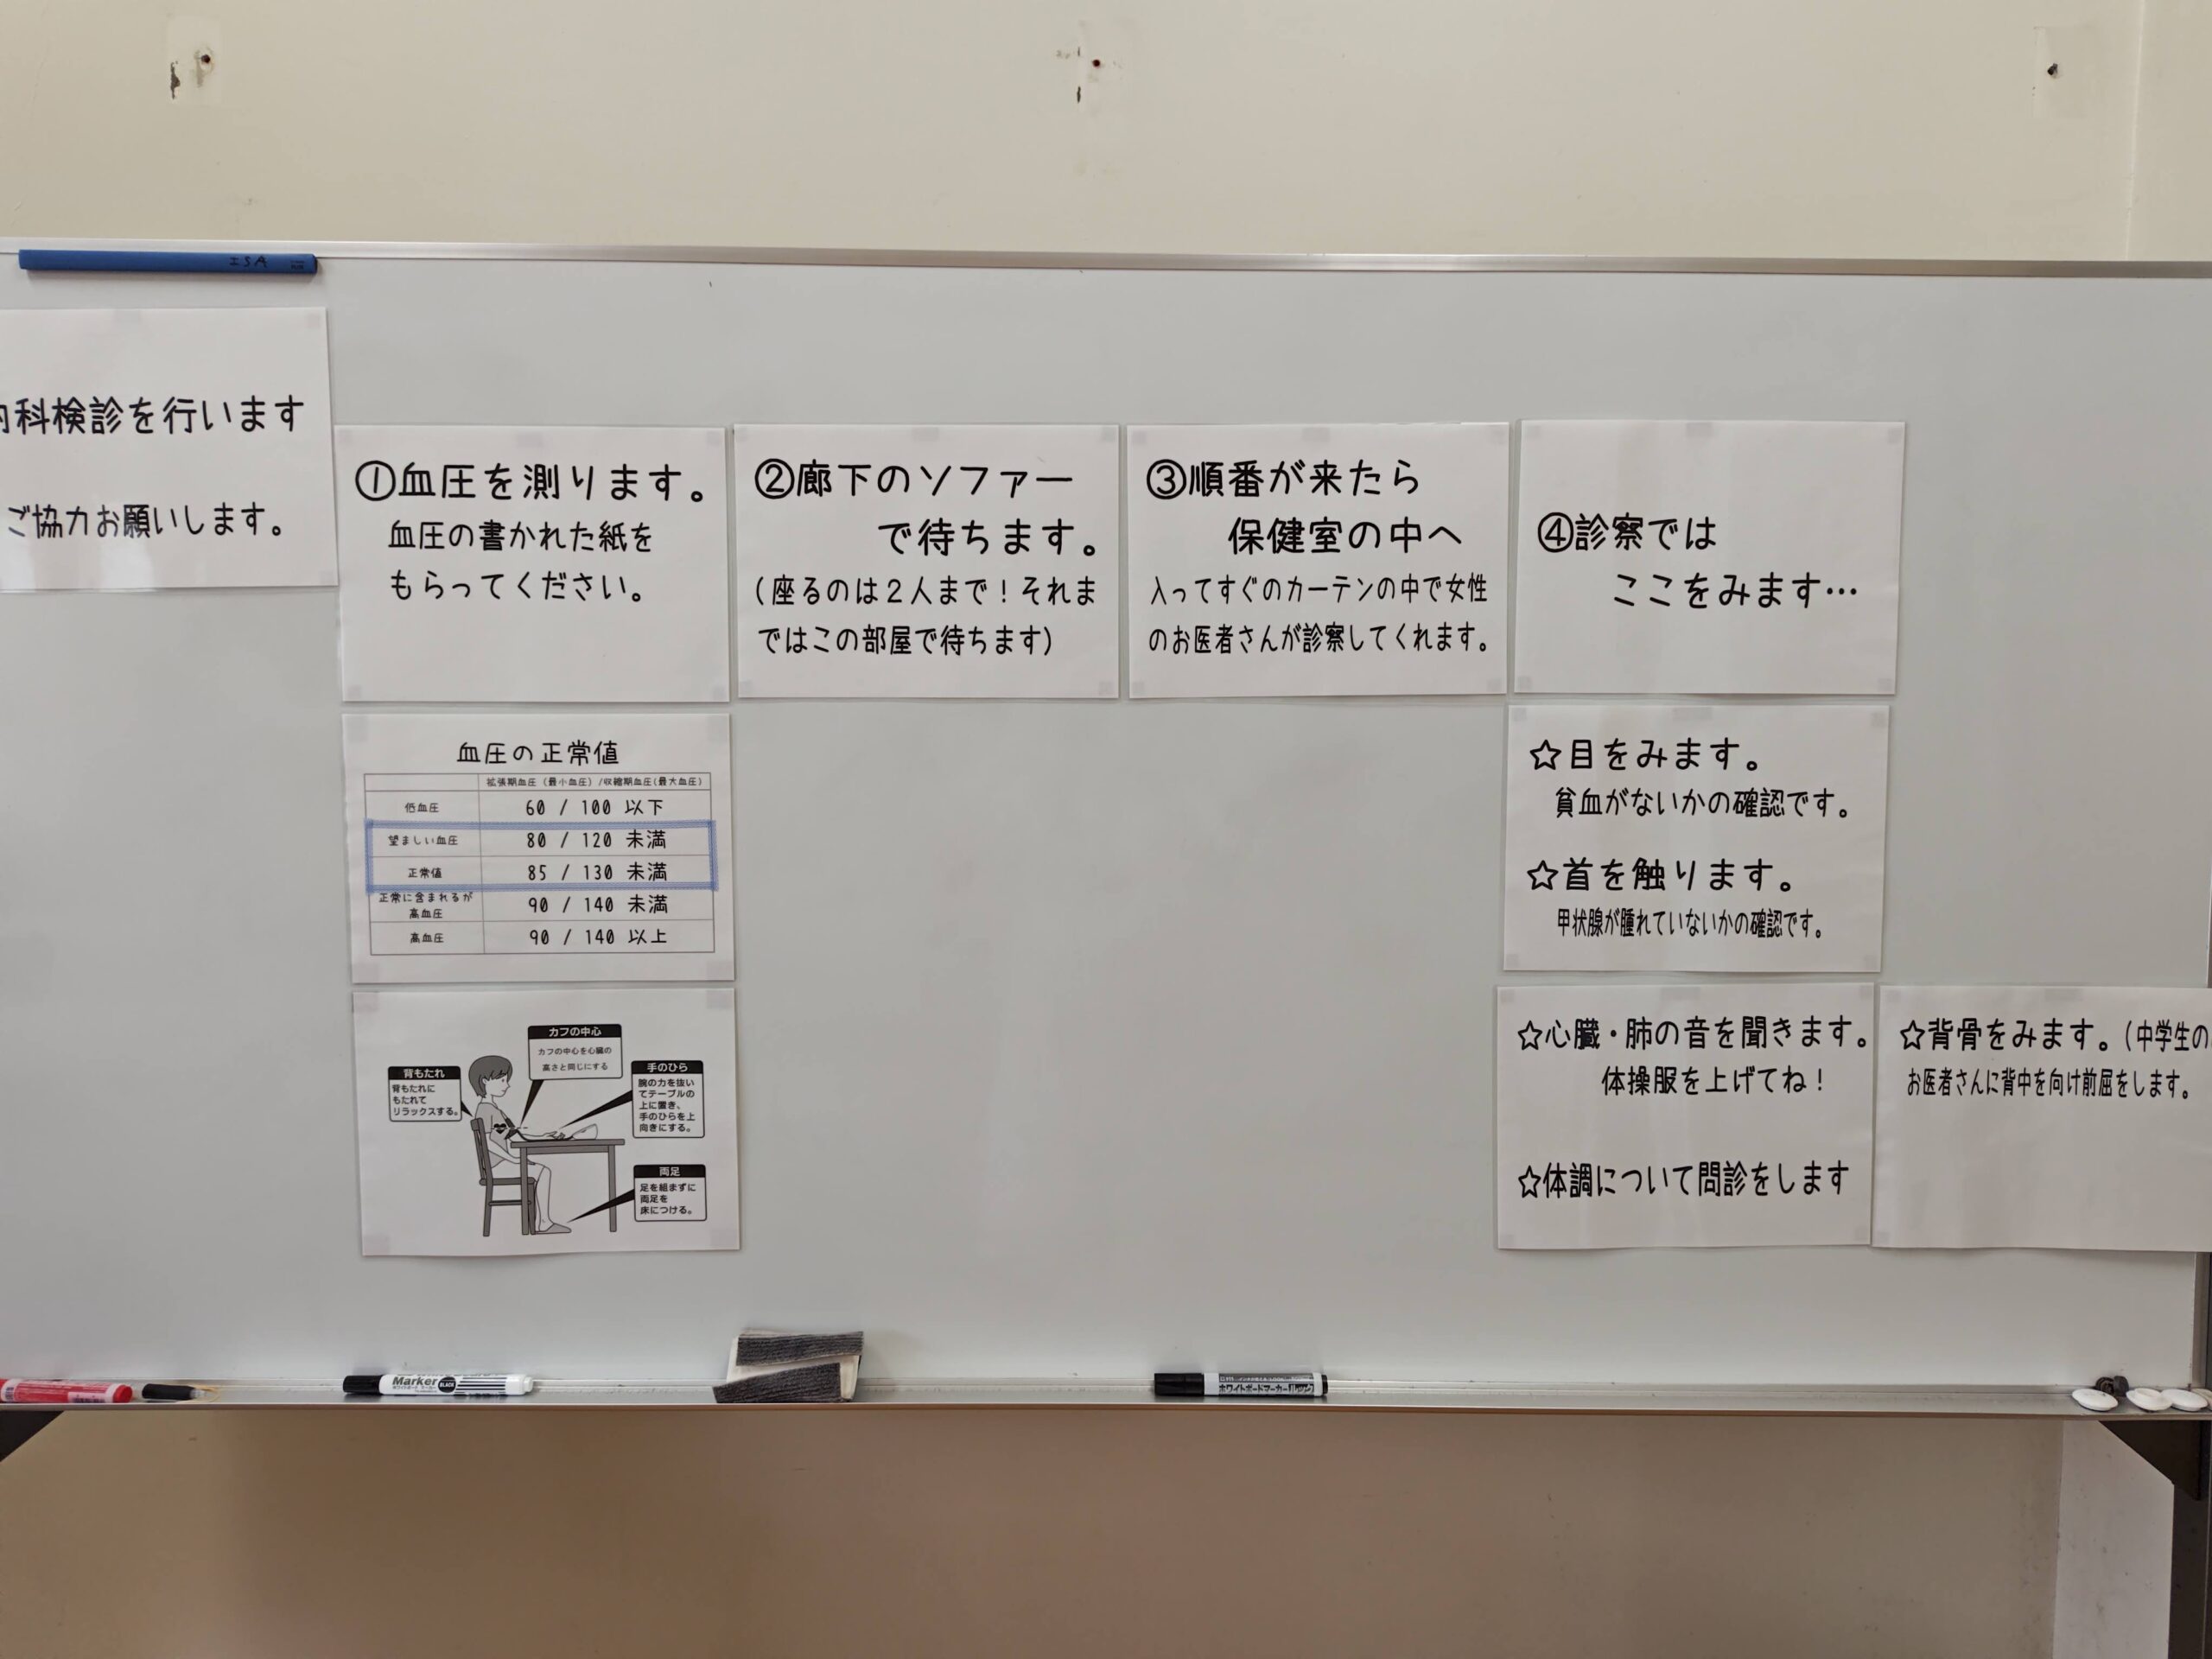 科検診を行います
ご協力お願いします。
①血圧を測ります。
血圧の書かれた紙を
もらってください。
②廊下のソファー
で待ちます。
(座るのは2人まで!それま
ではこの部屋で待ちます)
③順番が来たら
保健室の中へ
入ってすぐのカーテンの中で女性
のお医者さんが診察してくれます。
④診察では
ここをみます…
血圧の正常値
拡張期血圧(最小血圧)/収縮期血圧(最大血圧)
低血圧 60 / 100 以下
望ましい血圧 80 / 120 未満
正常値 85 / 130 未満
正常に含まれるが
高血圧 90 / 140 未満
高血圧 90 / 140 以上
カフの中心
カフの中心を心臓の
高さと同じにする
背もたれ
背もたれに
もたれて
リラックスする。
手のひら
腕の力を抜い
てテーブルの
上に置き、
手のひらを上
向きにする。
両足
足を組まずに
両足を
床につける。
☆目をみます。
貧血がないかの確認です。
☆首を触ります。
甲状腺が腫れていないかの確認です。
☆心臓・肺の音を聞きます。
体操服を上げてね!
☆体調について問診をします
☆背骨をみます。(中学生の
お医者さんに背中を向け前屈をします。
Marker
BLACK
ホワイトボードマーカー